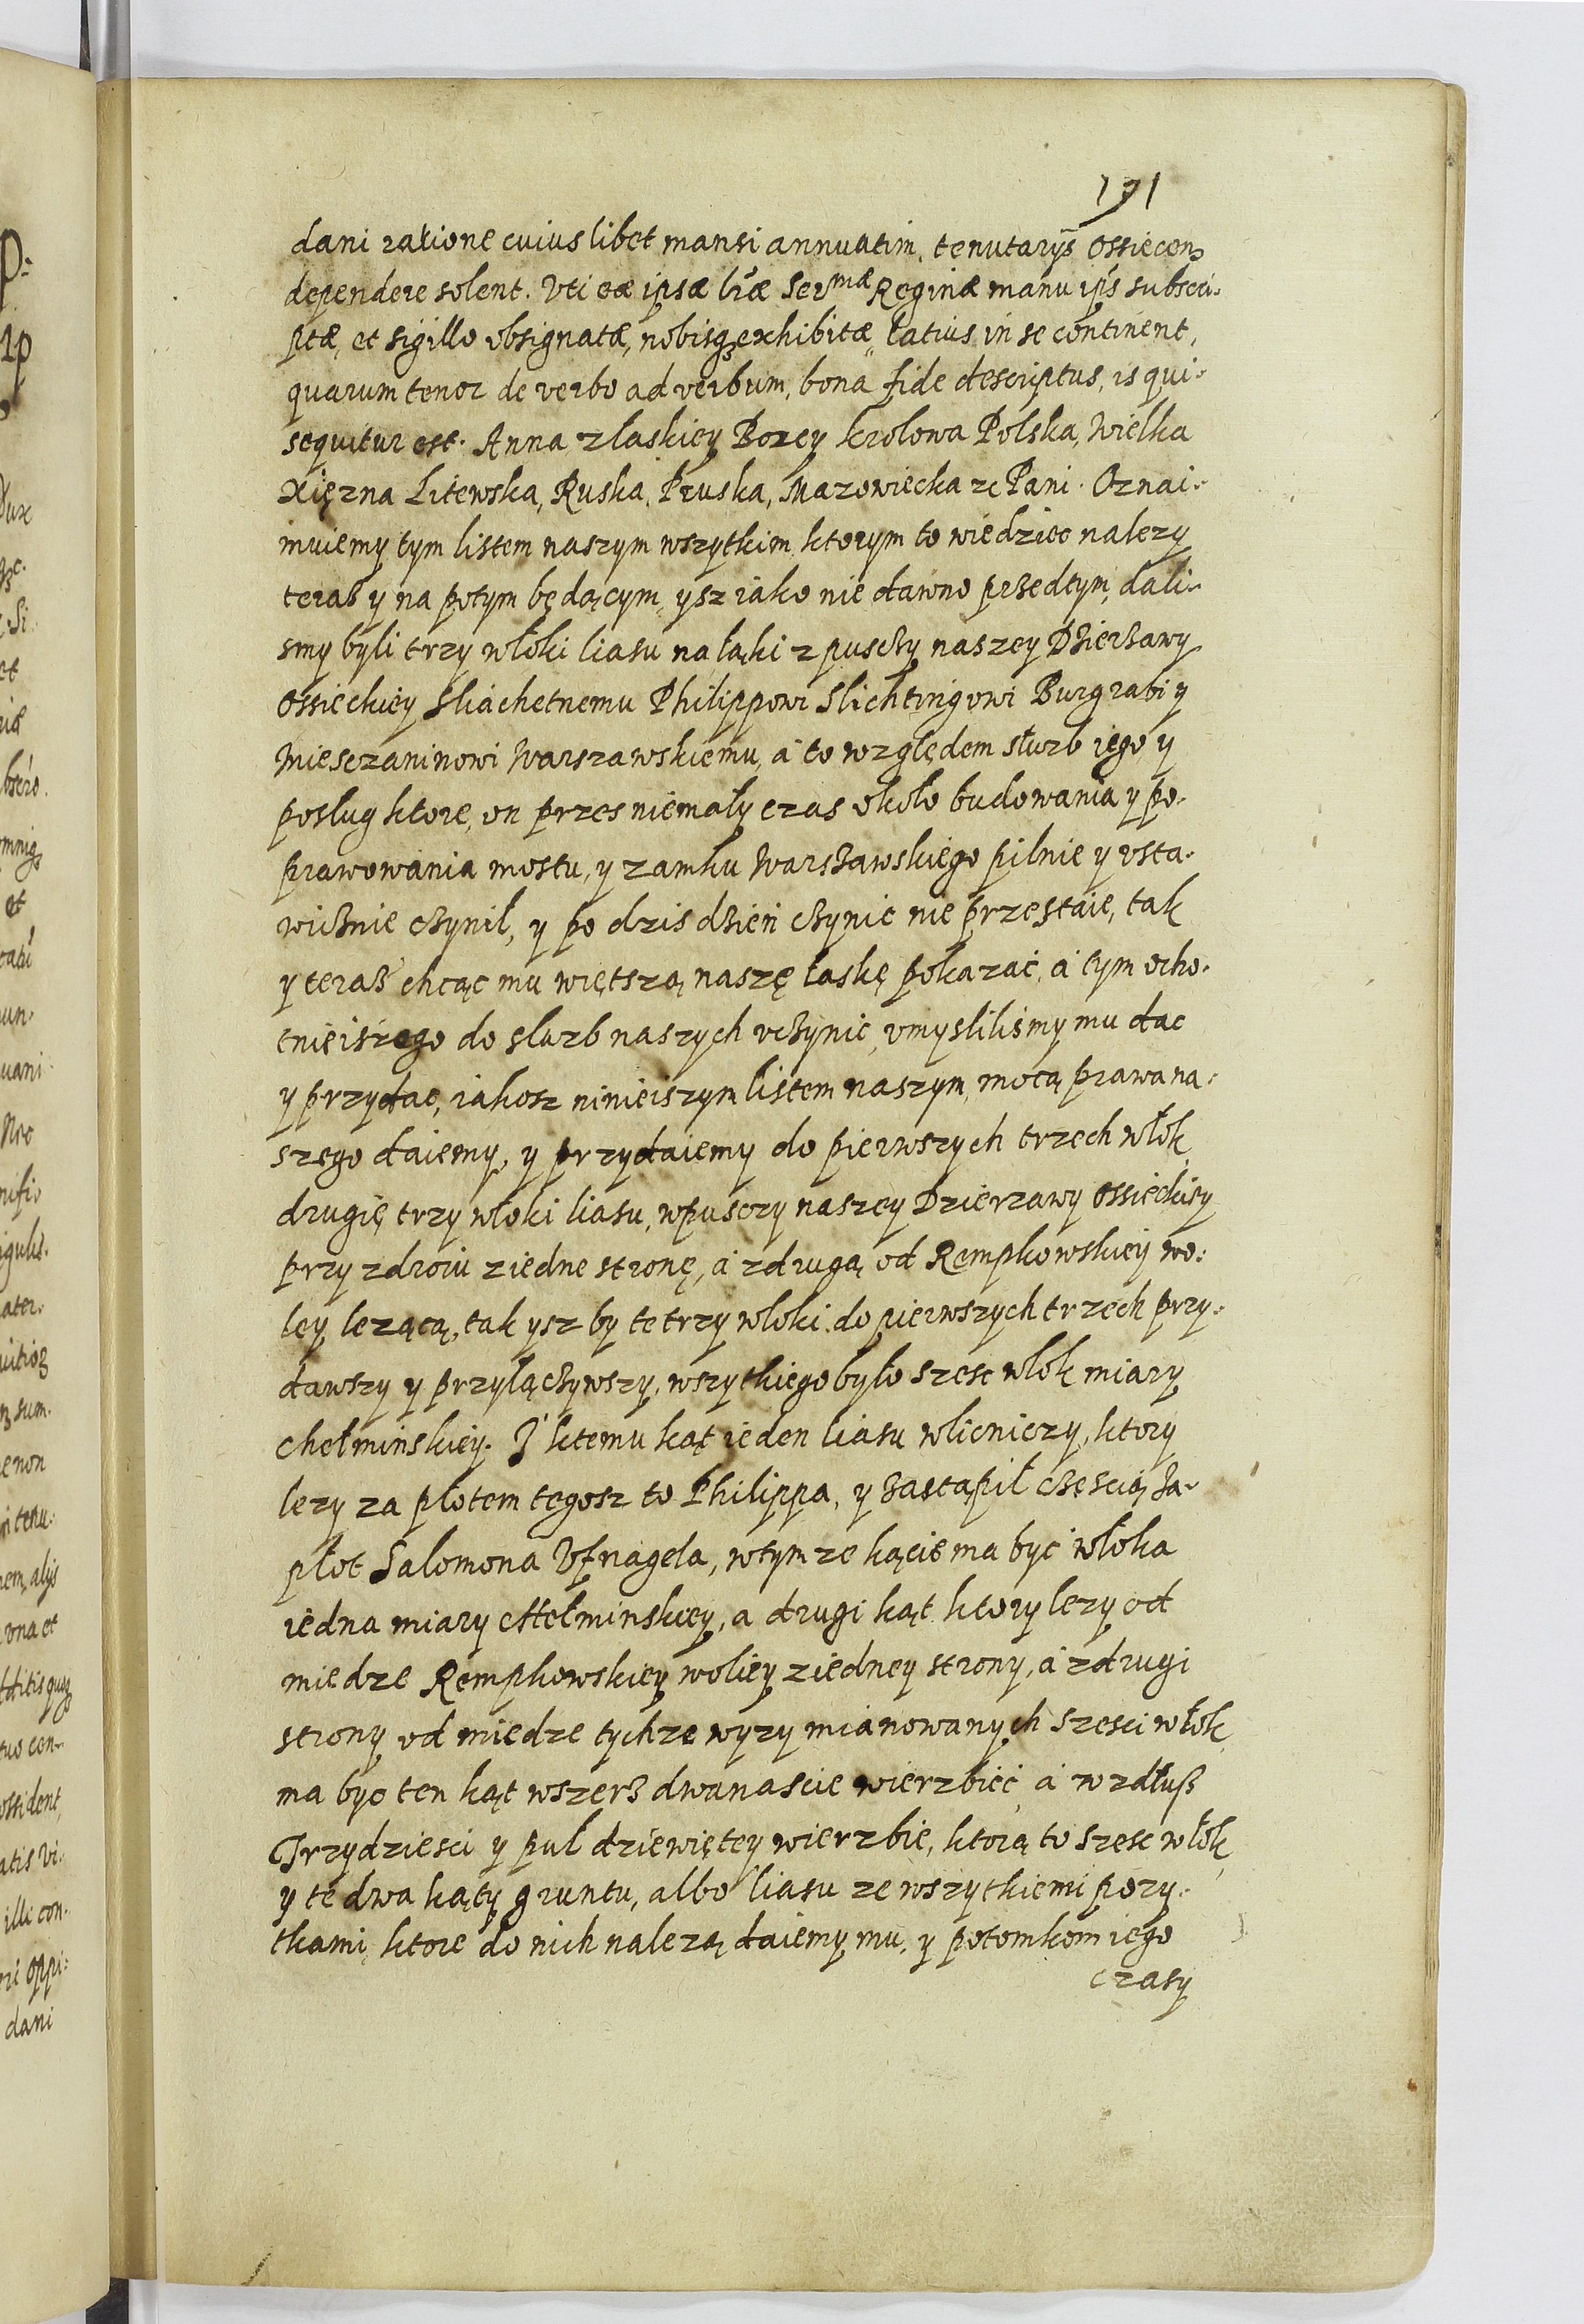 191
dani ratione cuiuslibet mansi annuatim, tenutarys Ossiecen̄
dependere solent. Vti eæ ipsæ lr̃æ Serᵐᵃᵉ Reginæ manu ips̃ subscri-
ptæ, et sigillo obsignatæ, nobisqꝫ exhibitæ latius in se continent,
quarum tenor de verbo ad verbum, bona fide descriptus, is qui
sequitur est. Anna z laskiey Bozey krolowa Polska, Wielka
Xięzna Litewska, Ruska, Pruska, Mazowiecka ꝛc Pani. Oznai-
muiemy tym listem naszym wszytkim ktorym to wiedziec nalezy
teraß y na potym będącym, ysz iako nie dawno pꝛzedtym, dali-
smy byli trzy włoki liasu na łąki z puscꝫy naszey Dꝫierꝫawy
Ossieckiey Sliachetnemu Philippowi Slichtingowi Burgrabi y
Miesczaninowi Warszawskiemu, á to względem słuzb iego y
poslug ktore, on przes niemały czas około budowania y po-
prawowania mostu, y zamku Warsꝫawskiego pilnie y vsta-
wicꝫnie cꝫynił, y po dzis dꝫień cꝫynic nie przestaie, tak
y teraß chcąc mu więtszą naszę łaskę pokazać, á tym ocho-
tnieiszego do sluzb naszych vcꝫynic, vmyslilismy mu dac
y przydac, iakosz ninieiszym listem naszym, mocą prawa na-
szego daiemy, y przydaiemy do pierwszych trzech włok
drugię trzy włoki liasu, w pusczy naszey Dzierzawy Ossieckiey
przy zdroiu z iedne stronę, á z drugą od Rempkowskiey wo-
ley lezącą, tak ysz by te trzy włoki do pierwszych trzech przy-
dawszy y przyłącꝫywszy, wszytkiego było szesc włok miary
chełminskiey. J ktemu kąt ieden liasu wlicniczy, ktory
lezy za płotem tegosz to Philippa, y ꝫastąpił cꝫęscią ꝫa-
płot Salomona Vfnagela, w tym ze kącie ma być włoka
iedna miary chełminskiey, a drugi kąt ktory lezy od
miedze Rempkowskiey woliey z iedney strony, á z drugi
strony od miedze tychze wyzy mianowanych szesci włok
ma byc ten kąt wszerꝫ dwanascie wierzbić, á wzdłuß
Trzydziesci y pul dziewiętey wierzbie, ktorą to szesc włok
y te dwa kąty gruntu, albo liasu ze wszytkiemi pozy-
tkami, ktore do nich nalezą daiemy mu, y potomkom iego
czasy